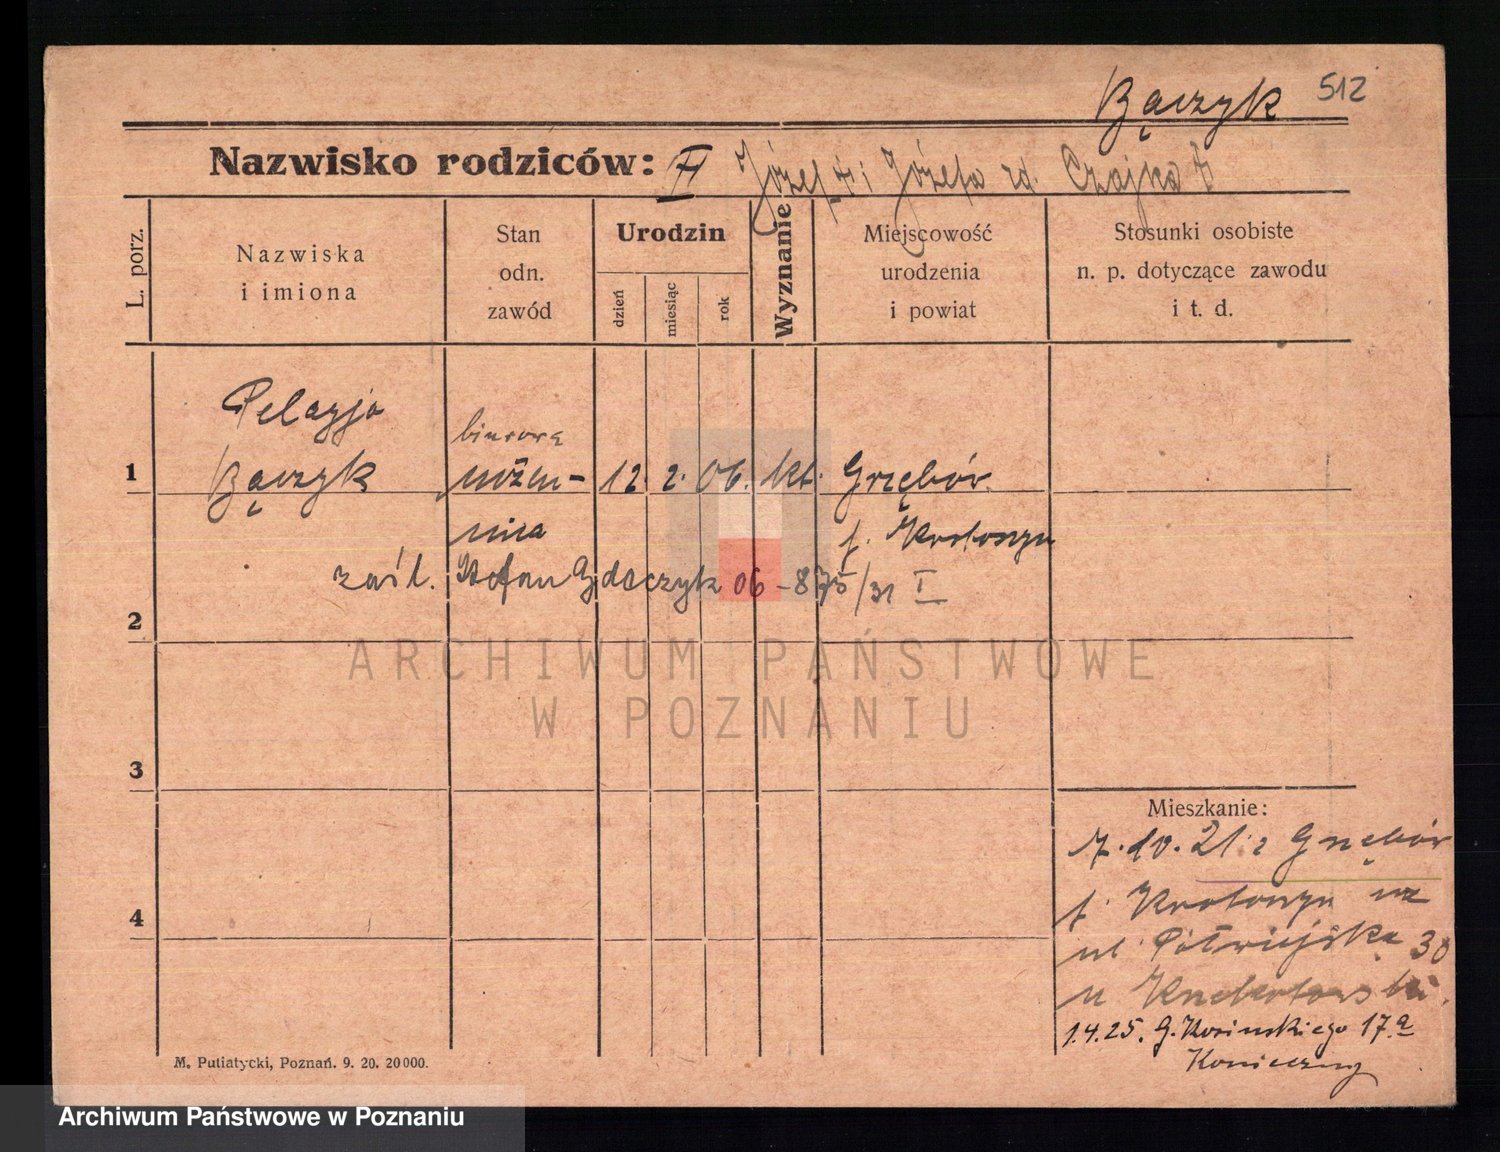 Bączyk 512
Nazwisko rodziców: II Józef † i Józefa rd. Czajka †
L. porz.
Nazwiska
i imiona
Stan
odn.
zawód
Urodzin
dzień
miesiąc
rok
Wyznanie
Miejscowość
urodzenia
i powiat
Stosunki osobiste
n. p. dotyczące zawodu
i t. d.
Pelagja
biurowa
1 Bączyk 12. 2. 06. kt. Grzębór
nica p. Krotoszyn
zaśl. Stefan Gdaczyk 06 - 875/31 I
2
ARCHIWUM PAŃSTWOWE
W POZNANIU
3
Mieszkanie:
7.10.21. z Grzębór
4
p. Krotoszyn
ul. Półwiejska 30
u
1.4.25. G. Kosinskiego 17a
Konieczny
M. Putiatycki, Poznań. 9. 20. 20000.
Archiwum Państwowe w Poznaniu